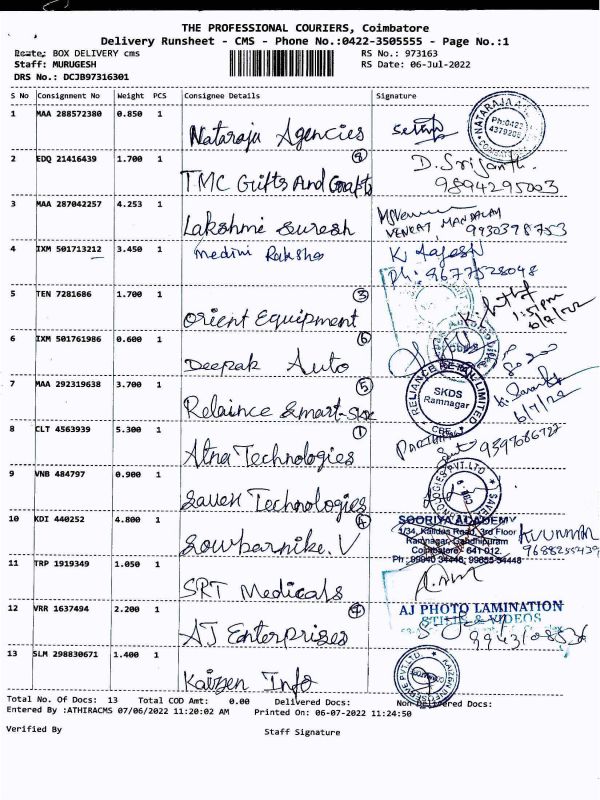 THE PROFESSIONAL COURIERS, Coimbatore
Delivery Runsheet - CMS - Phone No.:0422-3505555 - Page No.:1
Route: BOX DELIVERY cms RS No.: 973163
Staff: MURUGESH RS Date: 06-Jul-2022
DRS No.: DCJB97316301
S No Consignment No Weight PCS Consignee Details Signature
1 MAA 288572380 0.850 1
Nataraja Agencies
2 EDQ 21416439 1.700 1 D. Srijanth.
TMC Gifts And Crafts 9894295003
3 MAA 287042257 4.253 1
Lakshmi Suresh VENKAT MANDALAY 9930398753
4 IXM 501713212 3.450 1 Medini Raksha K. Rajesh
Ph: 9677528048
5 TEN 7281686 1.700 1 3
Orient Equipment 1:51pm
6/7/22
6 IXM 501761986 0.600 1 6
Deepak Auto
7 MAA 292319638 3.700 1 5 RELIANCE RETAIL LIMITED
SKDS
Ramnagar
CBE
Relaince Smart- 6/7/22
8 CLT 4563939 5.300 1 1
Atna Technologies
9 VNB 484797 0.900 1
Saven Technologies
10 KDI 440252 4.800 1 4 SOORIYA ACADEMY
1/34, Kalidas Road, 3rd Floor
Ramnagar, Gandhipuram
Coimbatore - 641 012.
Ph : 99940 34448, 99655 34448
Sowbarnike. V
11 TRP 1919349 1.050 1
SRT Medicals
12 VRR 1637494 2.200 1 AJ PHOTO LAMINATION
STILLS & VIDEOS
AJ Enterprises
13 SLM 298830671 1.400 1
Kaizen Info
Total No. Of Docs: 13 Total COD Amt: 0.00 Delivered Docs: Non Delivered Docs:
Entered By :ATHIRACMS 07/06/2022 11:20:02 AM Printed On: 06-07-2022 11:24:50
Verified By Staff Signature